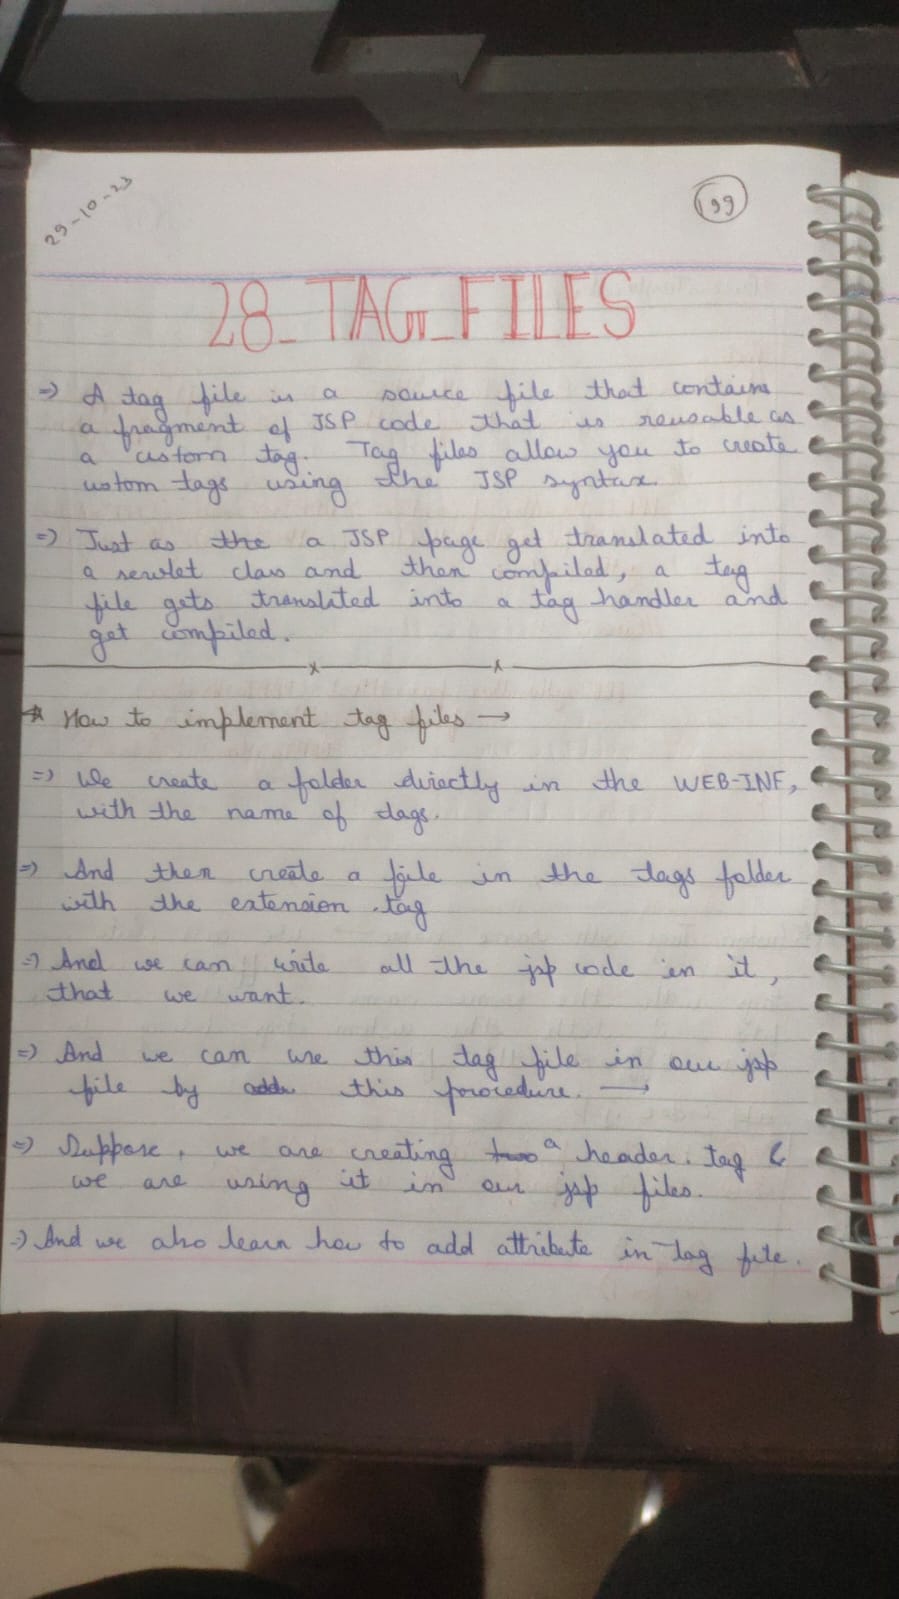 29-10-23
199
28_TAG_FILES
=> A tag file is a source file that contains
a fragment of JSP code that is reusable as
a custom tag. Tag files allow you to create
ustom tags using the JSP syntax.
=> Just as the a JSP page get translated into
a servlet class and then compiled, a tag
file gets translated into a tag handler and
get compiled.
x x
* How to implement tag files →
=> We create a folder directly in the WEB-INF,
with the name of tags.
=> And then create a file in the tags folder
with the extension .tag
=> And we can write all the jsp code in it,
that we want.
=> And we can use this tag file in our jsp
file by this procedure. →
=> Suppose, we are creating a header.tag &
we are using it in our jsp files.
=> And we also learn how to add attribute in tag file.